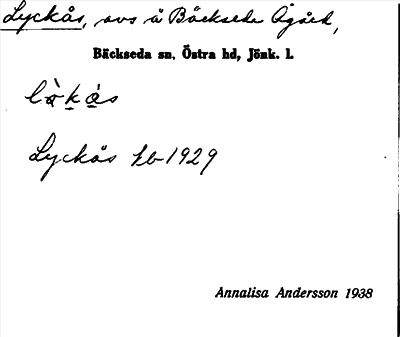 Lyckås, avs å Bäckseda Ågård,
Bäckseda sn, Östra hd, Jönk. l.
Lyckås jb 1929
Annalisa Andersson 1938